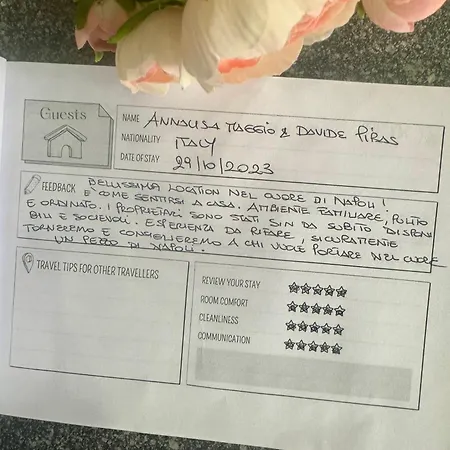 Guests
NAME ANNALISA MAGGIO & DAVIDE PIRAS
NATIONALITY ITALY
DATE OF STAY 29/10/2023
FEEDBACK BELLISSIMA LOCATION NEL CUORE DI NAPOLI!
E' COME SENTIRSI A CASA. AMBIENTE FAMILIARE, PULITO
E ORDINATO. I PROPRIETARI SONO STATI SIN DA SUBITO DISPONI
BILI E SOCIEVOLI. ESPERIENZA DA RIFARE, SICURAMENTE
TORNEREMO E CONSIGLIEREMO A CHI VUOLE PORTARE NEL CUORE
UN PEZZO DI NAPOLI.
TRAVEL TIPS FOR OTHER TRAVELLERS
REVIEW YOUR STAY
ROOM COMFORT
CLEANLINESS
COMMUNICATION